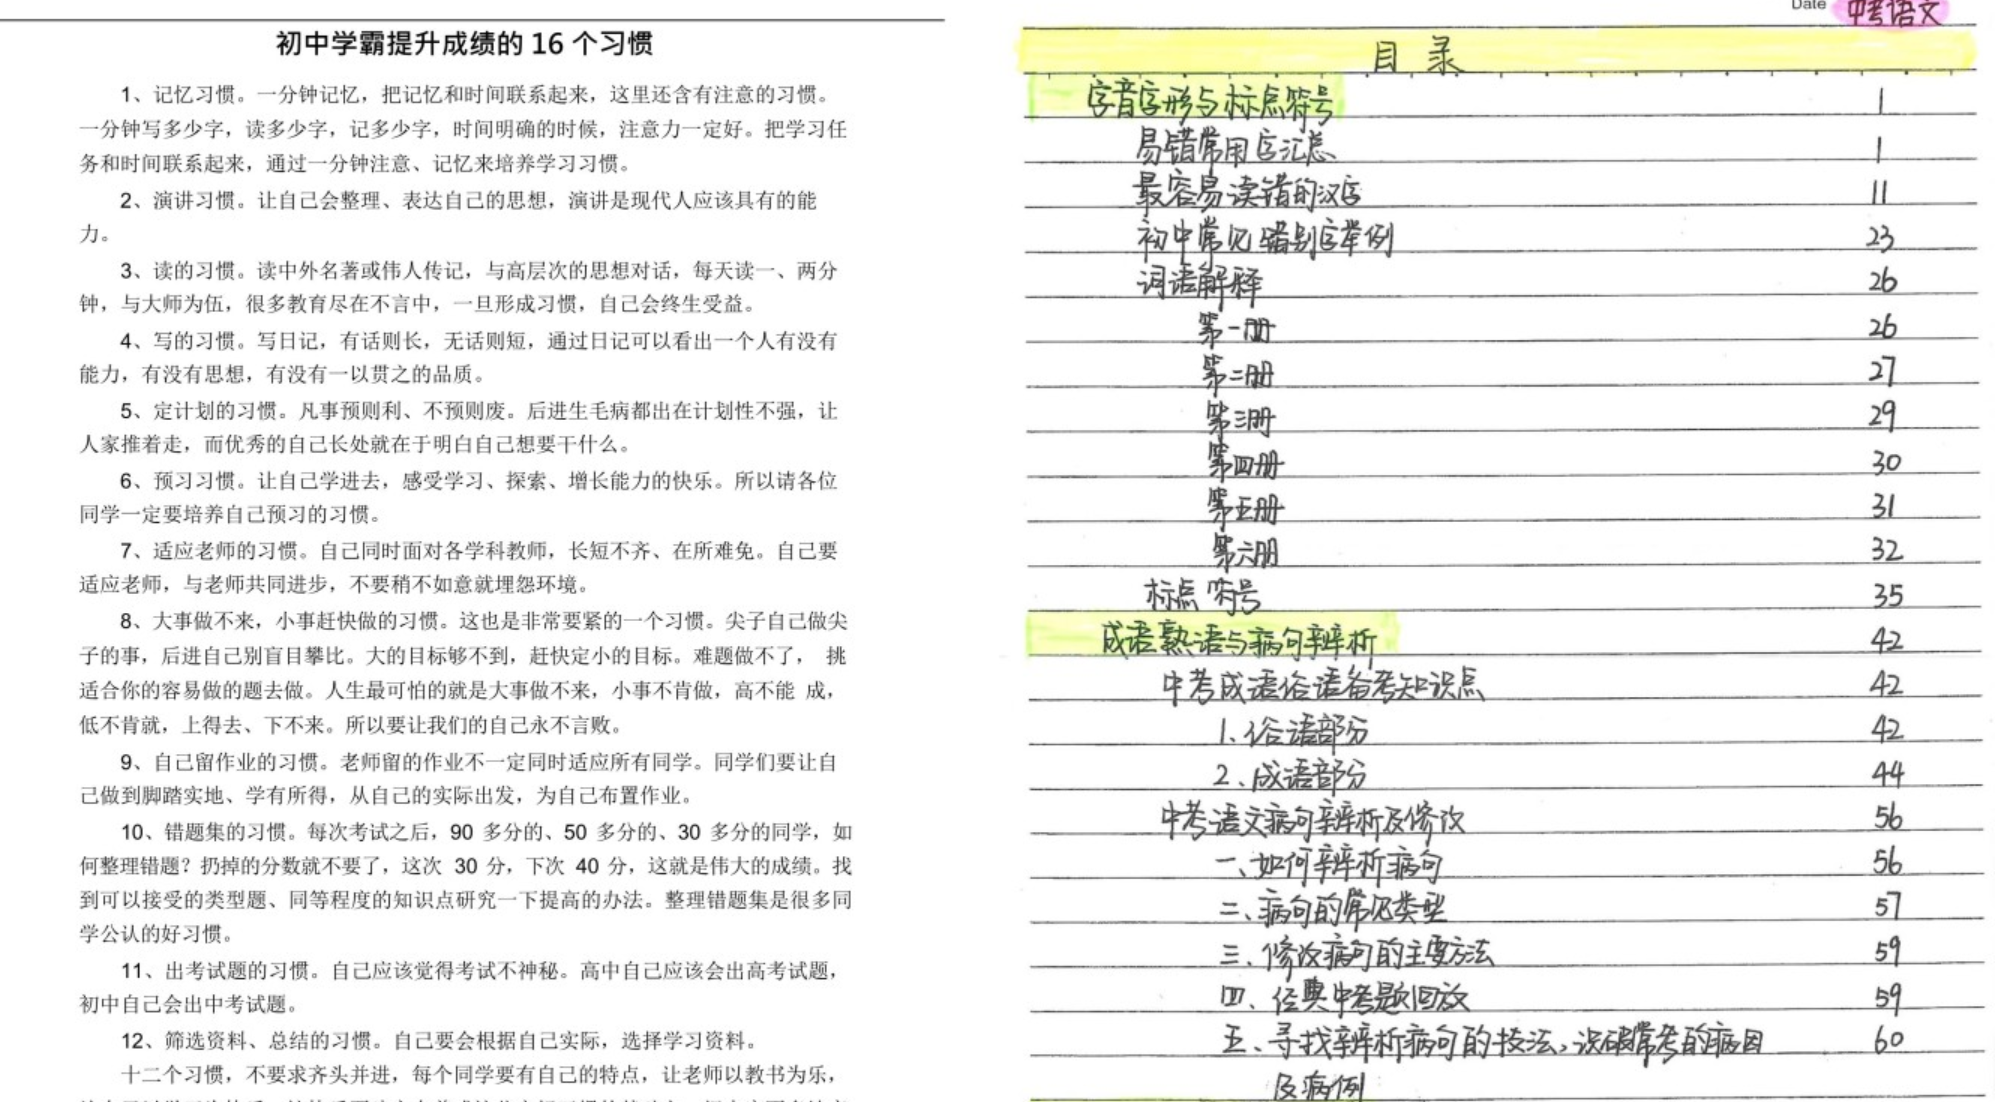 初中学霸提升成绩的 16 个习惯
1、记忆习惯。一分钟记忆，把记忆和时间联系起来，这里还含有注意的习惯。
一分钟写多少字，读多少字，记多少字，时间明确的时候，注意力一定好。把学习任
务和时间联系起来，通过一分钟注意、记忆来培养学习习惯。
2、演讲习惯。让自己会整理、表达自己的思想，演讲是现代人应该具有的能
力。
3、读的习惯。读中外名著或伟人传记，与高层次的思想对话，每天读一、两分
钟，与大师为伍，很多教育尽在不言中，一旦形成习惯，自己会终生受益。
4、写的习惯。写日记，有话则长，无话则短，通过日记可以看出一个人有没有
能力，有没有思想，有没有一以贯之的品质。
5、定计划的习惯。凡事预则利、不预则废。后进生毛病都出在计划性不强，让
人家推着走，而优秀的自己长处就在于明白自己想要干什么。
6、预习习惯。让自己学进去，感受学习、探索、增长能力的快乐。所以请各位
同学一定要培养自己预习的习惯。
7、适应老师的习惯。自己同时面对各学科教师，长短不齐、在所难免。自己要
适应老师，与老师共同进步，不要稍不如意就埋怨环境。
8、大事做不来，小事赶快做的习惯。这也是非常要紧的一个习惯。尖子自己做尖
子的事，后进自己别盲目攀比。大的目标够不到，赶快定小的目标。难题做不了， 挑
适合你的容易做的题去做。人生最可怕的就是大事做不来，小事不肯做，高不能 成，
低不肯就，上得去、下不来。所以要让我们的自己永不言败。
9、自己留作业的习惯。老师留的作业不一定同时适应所有同学。同学们要让自
己做到脚踏实地、学有所得，从自己的实际出发，为自己布置作业。
10、错题集的习惯。每次考试之后，90 多分的、50 多分的、30 多分的同学，如
何整理错题？扔掉的分数就不要了，这次 30 分，下次 40 分，这就是伟大的成绩。找
到可以接受的类型题、同等程度的知识点研究一下提高的办法。整理错题集是很多同
学公认的好习惯。
11、出考试题的习惯。自己应该觉得考试不神秘。高中自己应该会出高考试题，
初中自己会出中考试题。
12、筛选资料、总结的习惯。自己要会根据自己实际，选择学习资料。
十二个习惯，不要求齐头并进，每个同学要有自己的特点，让老师以教书为乐，
Date 中考语文
目录
字音字形与标点符号 1
易错常用字汇总 1
最容易读错的汉字 11
初中常见错别字举例 23
词语解释 26
第一册 26
第二册 27
第三册 29
第四册 30
第五册 31
第六册 32
标点符号 35
成语熟语与病句辨析 42
中考成语俗语备考知识点 42
1、俗语部分 42
2、成语部分 44
中考语文病句辨析及修改 56
一、如何辨析病句 56
二、病句的常见类型 57
三、修改病句的主要方法 59
四、经典中考题回放 59
五、寻找辨析病句的技法，识破常考的病因 60
及病例